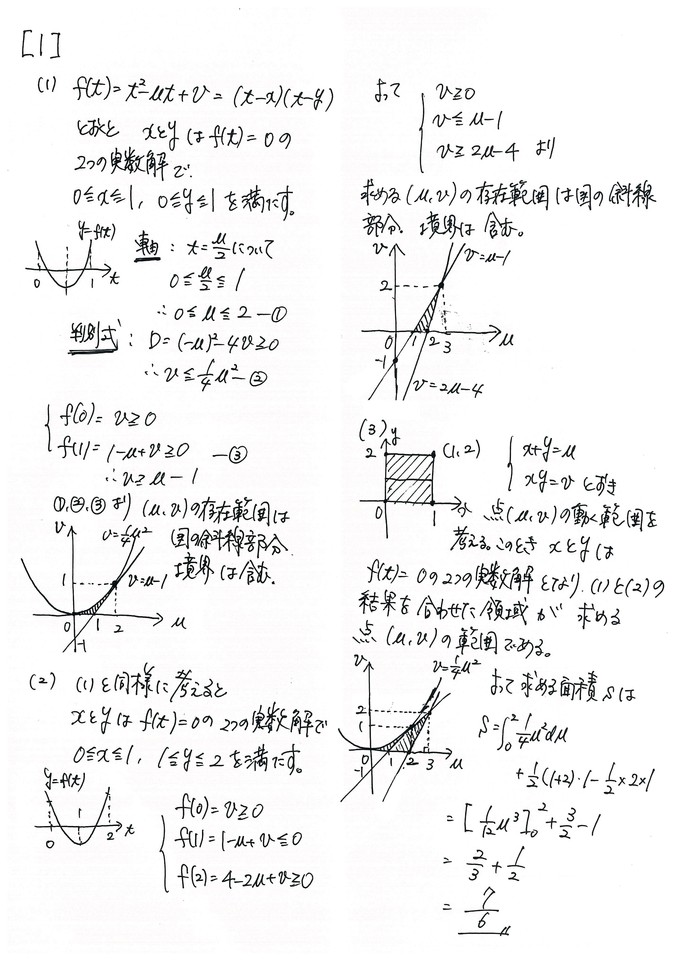 [1]
(1) f(t)=t²-ut+v=(t-x)(t-y)
とおくと xとyはf(t)=0の
2つの実数解で、
0≦x≦1, 0≦y≦1 を満たす。
y=f(t)
0 1 t
軸: t=u/2について
0≦u/2≦1
∴0≦u≦2 ―①
判別式: D=(-u)²-4v≧0
∴v≦1/4u² ―②
f(0)=v≧0
f(1)=1-u+v≧0 ―③
∴v≧u-1
①,②,③より (u,v)の存在範囲は
図の斜線部分
境界は含む。
v v=1/4u²
1 v=u-1
0 1 2 u
-1
(2) (1)と同様に考えると
xとyはf(t)=0の2つの実数解で
0≦x≦1, 1≦y≦2 を満たす。
y=f(t)
0 1 2 t
f(0)=v≧0
f(1)=1-u+v≦0
f(2)=4-2u+v≧0
よって
v≧0
v≦u-1
v≧2u-4 より
求める(u,v)の存在範囲は図の斜線
部分。境界は含む。
v v=u-1
2
0 1 2 3 u
-1
v=2u-4
(3) y
2 (1,2)
0 1 x
x+y=u
xy=v とおき
点(u,v)の動く範囲を
考える。このとき xとyは
f(t)=0の2つの実数解となり、(1)と(2)の
結果を合わせた領域が 求める
点(u,v)の範囲である。
v v=1/4u²
2
1
0 1 2 3 u
-1
よって求める面積Sは
S=∫₀²1/4u²du
+1/2(1+2)・1-1/2×2×1
=[1/12u³]₀²+3/2-1
=2/3+1/2
=7/6